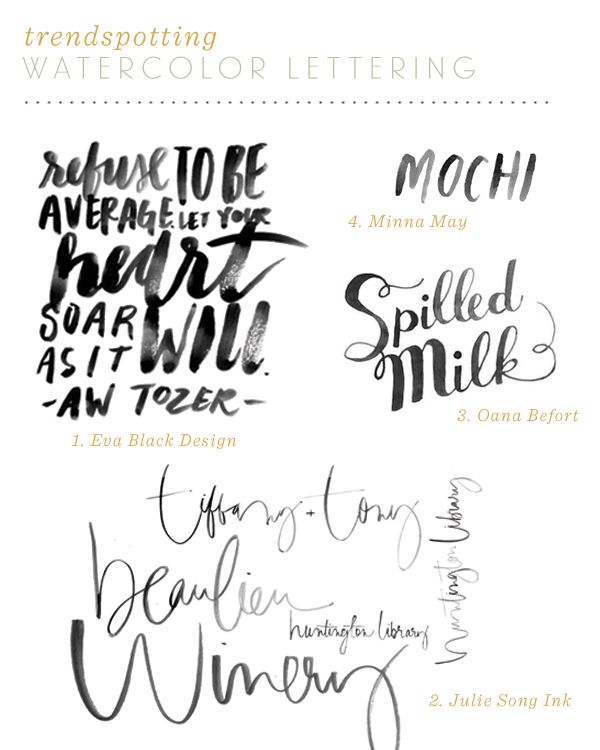 trendspotting
WATERCOLOR LETTERING
refuse TO BE
AVERAGE. LET YOUR
heart
SOAR
AS IT WILL.
-AW TOZER-
1. Eva Black Design
MOCHI
4. Minna May
Spilled
Milk
3. Oana Befort
tiffany + tony
beaulieu
Winery
huntington library
huntington library
2. Julie Song Ink